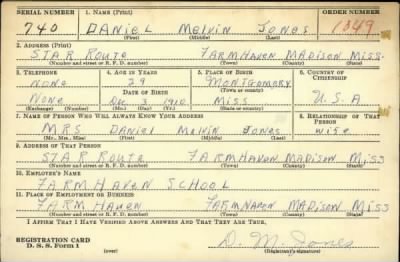 SERIAL NUMBER 1. NAME (Print) ORDER NUMBER
740 DANIEL Melvin Jones 1349
(First) (Middle) (Last)
2. ADDRESS (Print)
STAR Route FARMHAVEN MADISON MISS.
(Number and street or R. F. D. number) (Town) (County) (State)
3. TELEPHONE 4. AGE IN YEARS 5. PLACE OF BIRTH 6. COUNTRY OF CITIZENSHIP
NONE 29 MONTGOMERY
DATE OF BIRTH (Town or county)
NONE Dec 3 1910 MISS U.S.A
(Exchange) (Number) (Mo.) (Day) (Yr.) (State or country)
7. NAME OF PERSON WHO WILL ALWAYS KNOW YOUR ADDRESS 8. RELATIONSHIP OF THAT PERSON
MRS DANIEL MELVIN JONES wife
(Mr., Mrs., Miss) (First) (Middle) (Last)
9. ADDRESS OF THAT PERSON
STAR ROUTE FARMHAVEN MADISON MISS
(Number and street or R. F. D. number) (Town) (County) (State)
10. EMPLOYER'S NAME
FARM HAVEN SCHOOL
11. PLACE OF EMPLOYMENT OR BUSINESS
FARM HAVEN FARMHAVEN MADISON MISS
(Number and street or R. F. D. number) (Town) (County) (State)
I AFFIRM THAT I HAVE VERIFIED ABOVE ANSWERS AND THAT THEY ARE TRUE.
REGISTRATION CARD
D. S. S. Form 1 (over) D. M. Jones
(Registrant's signature)